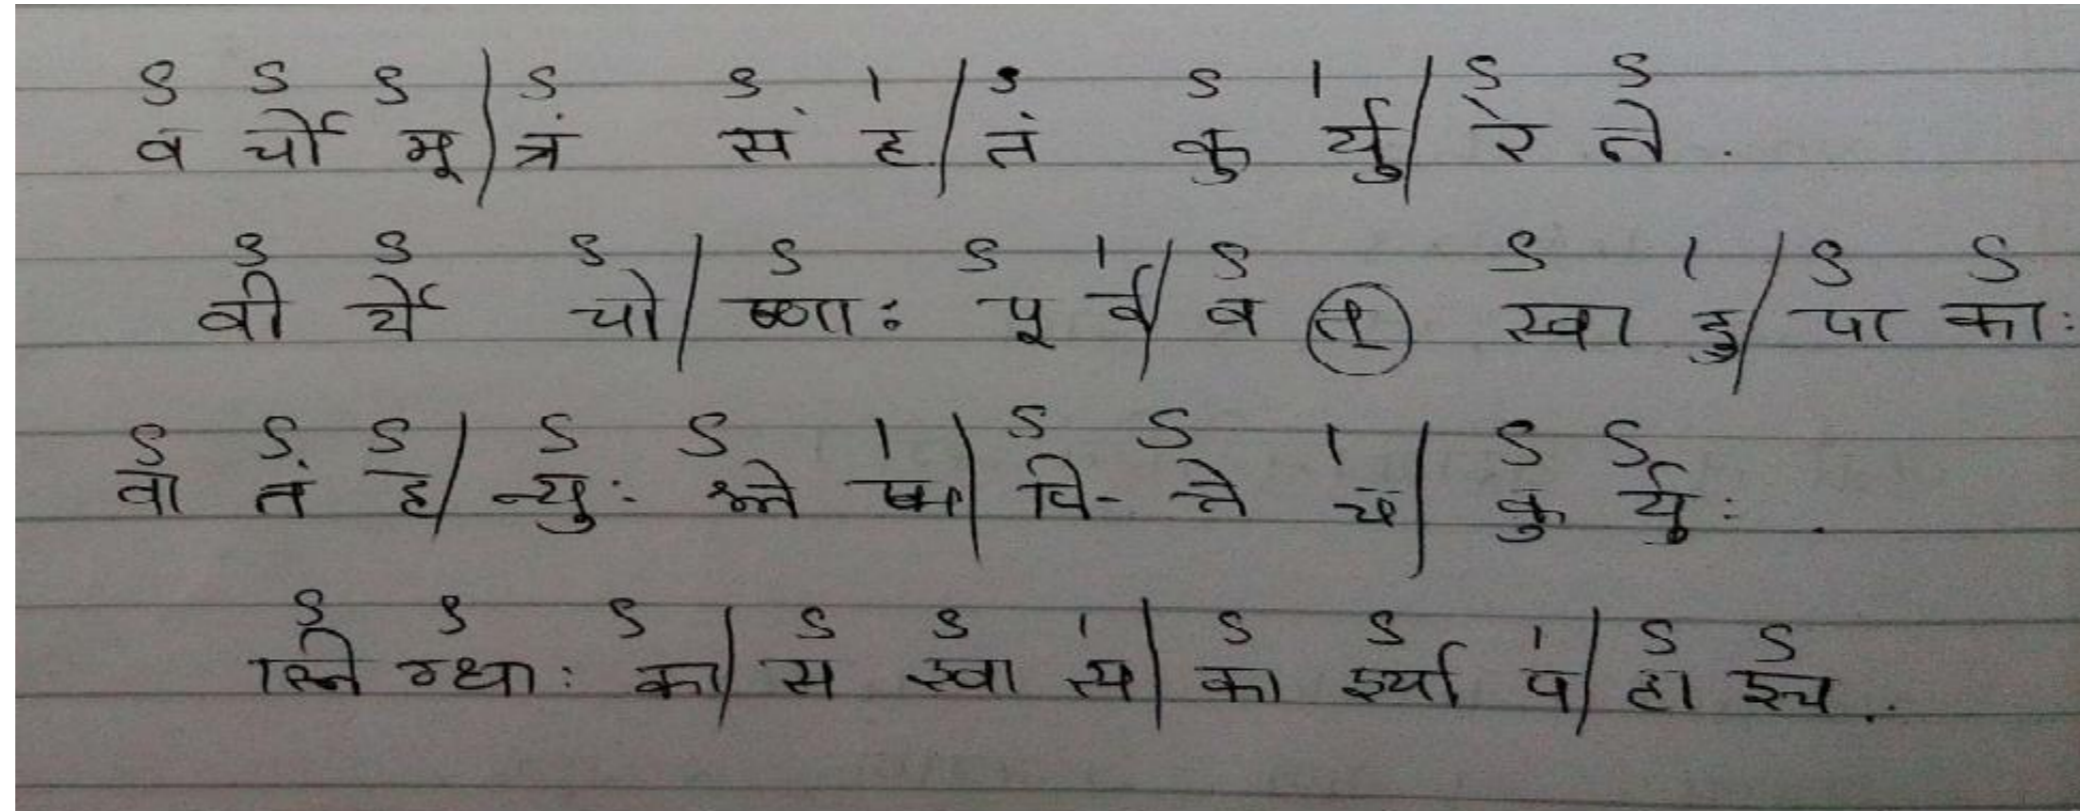 S S S | S S I | S S I | S S
व र्चो मू | त्रं सं ह | तं कु र्यु | रे ते .
S S S | S S I | S S I | S S
वी र्ये चो | ष्णाः पू र्व | व त् स्वा दु | पा काः
S S S | S S I | S S I | S S
वा तं ह | न्युः श्ले ष्म | पि- त्ते च | कु र्युः .
S S S | S S I | S S I | S S
स्ने ग्धाः का | स श्वा स्य | का र्श्या प | हा श्च ..